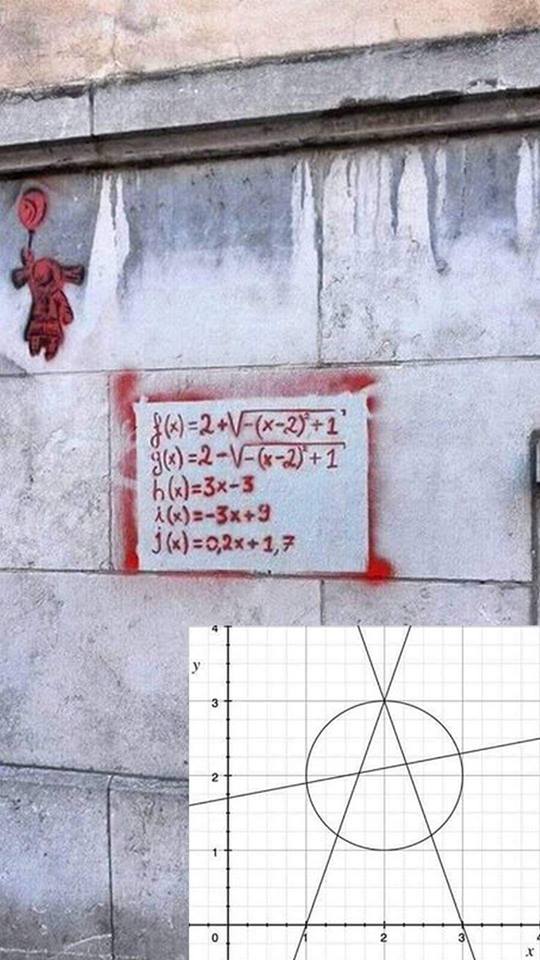 f(x)=2+√-(x-2)²+1
g(x)=2-√-(x-2)²+1
h(x)=3x-3
i(x)=-3x+9
j(x)=0,2x+1,7
4
y
3
2
1
0 1 2 3 4
x